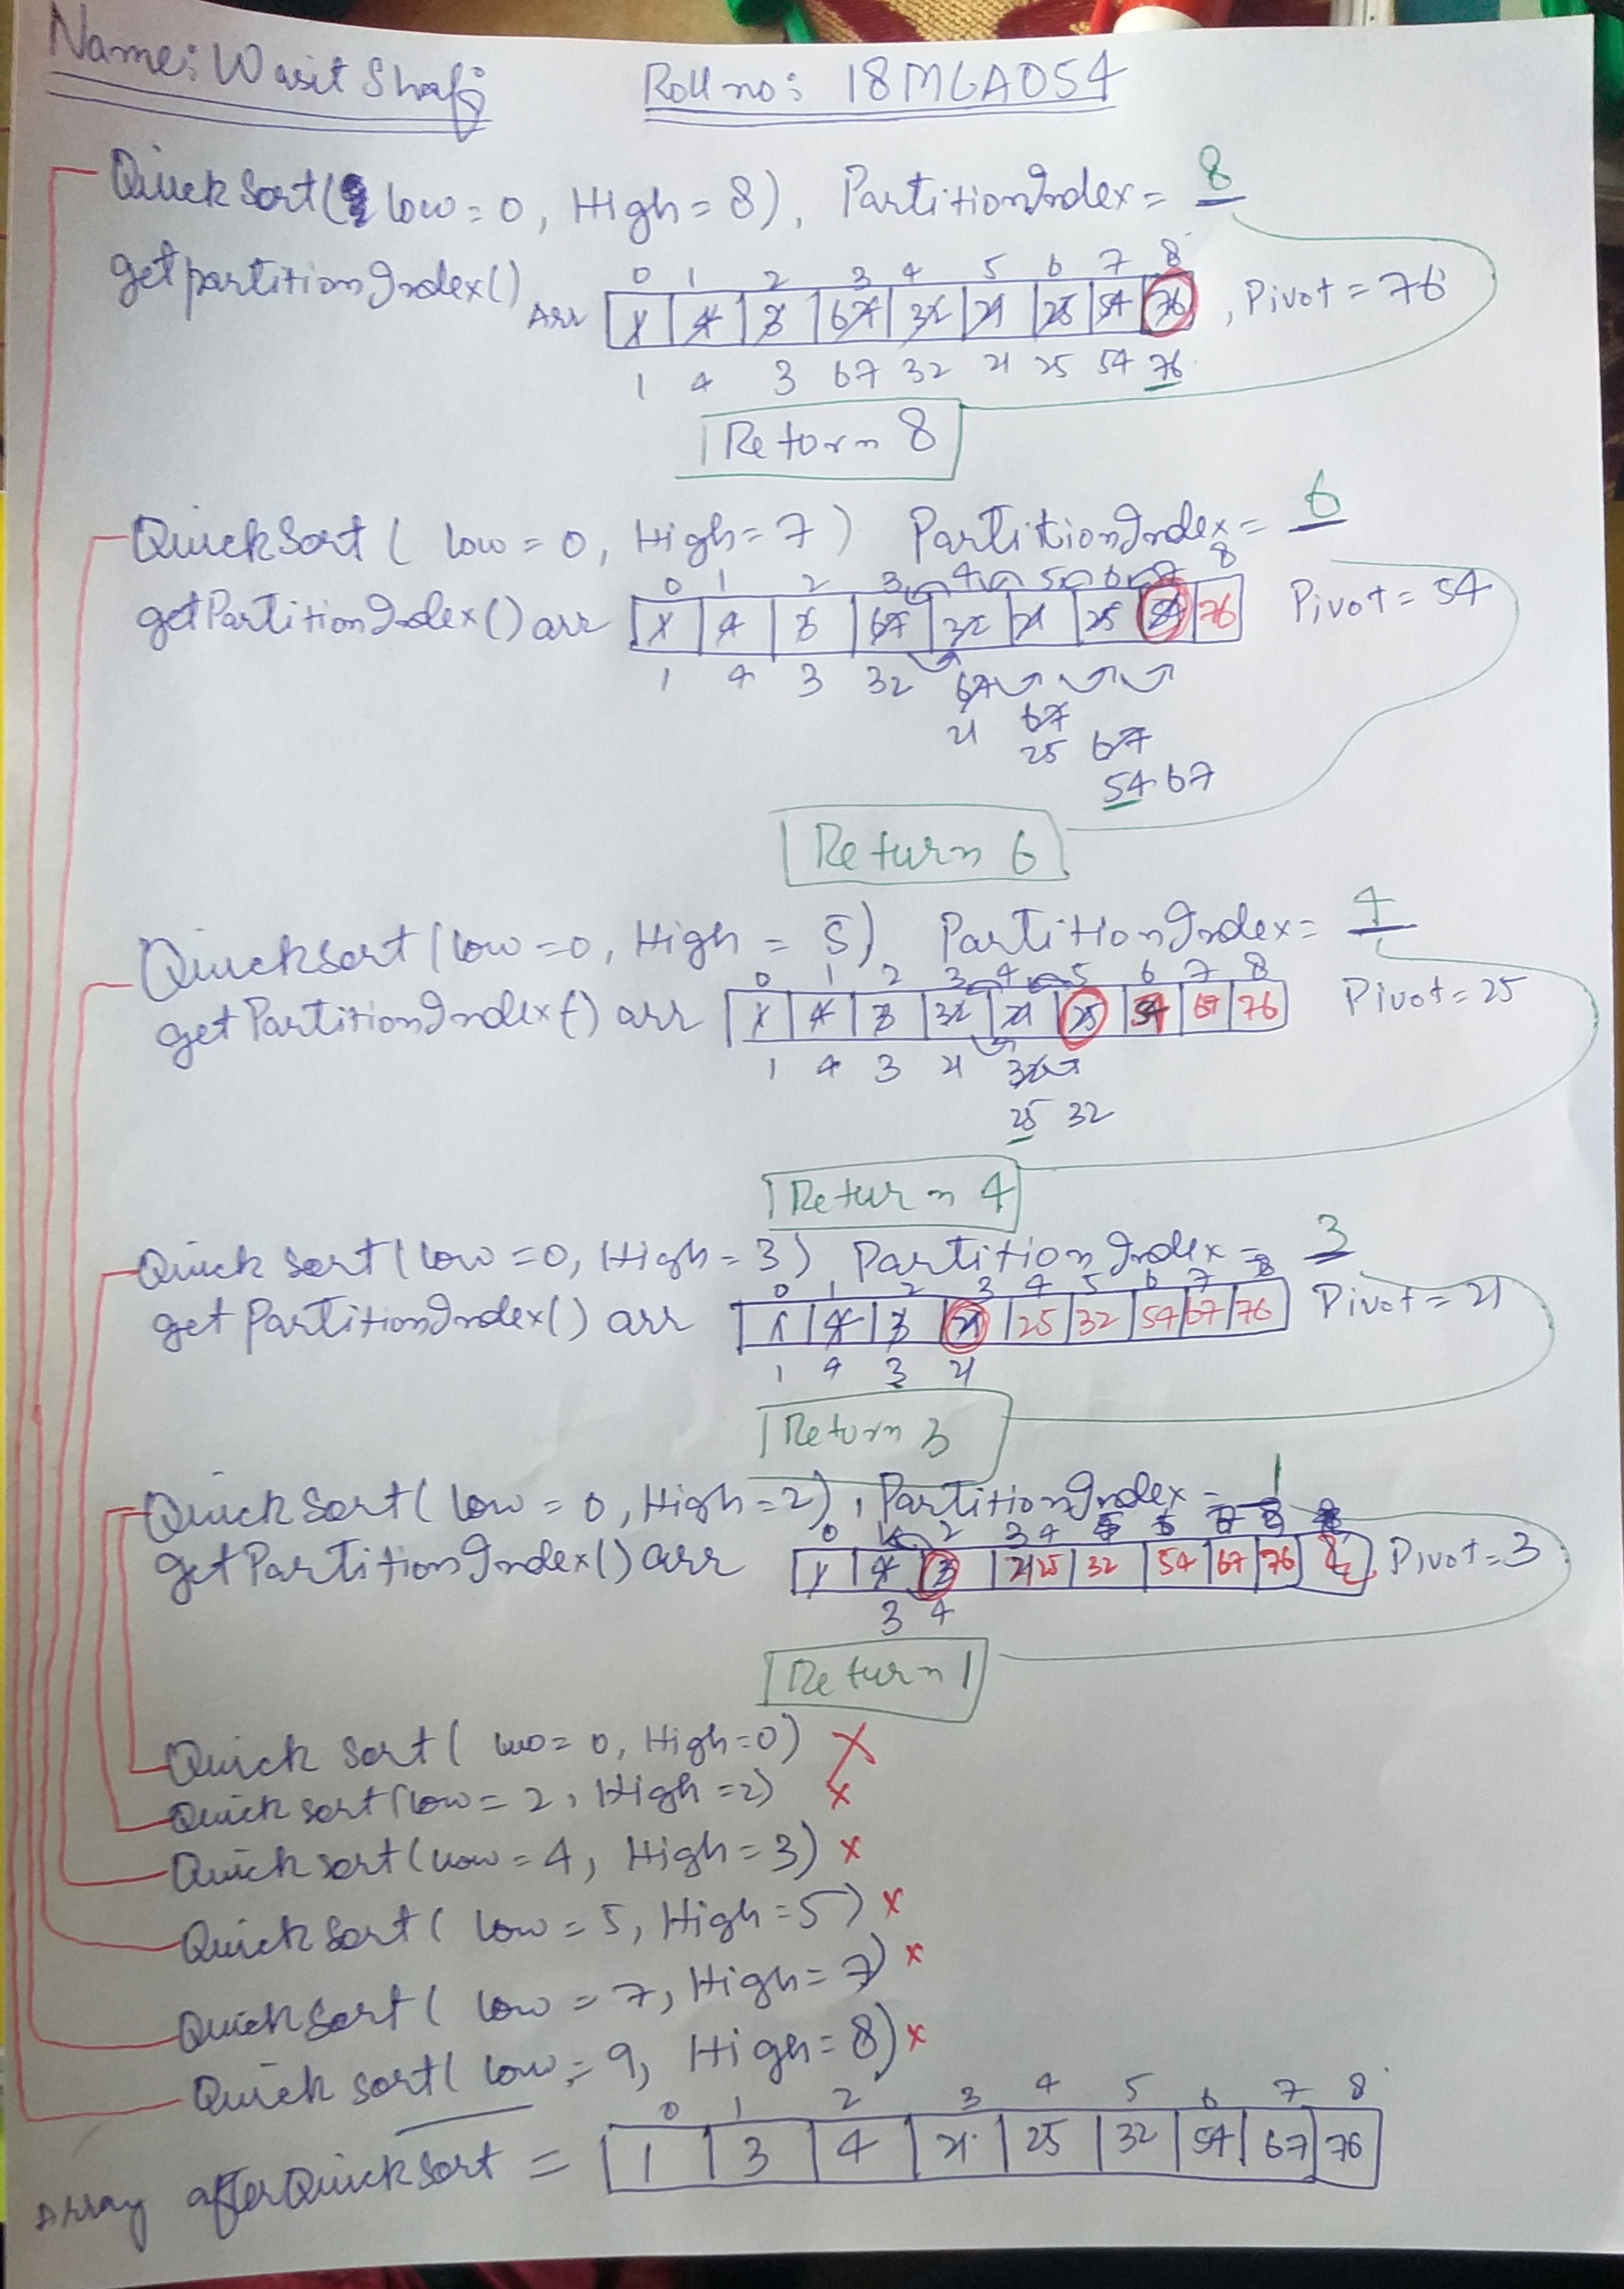 Name: Wasit Shafi Roll no: 18MCA054
QuickSort( low = 0, High = 8), PartitionIndex = 8
0 1 2 3 4 5 6 7 8
getpartitionIndex() Arr 1 4 3 67 32 21 25 54 76, Pivot = 76
1 4 3 67 32 21 25 54 76
Return 8
QuickSort ( low = 0, High = 7 ) PartitionIndex = 6
0 1 2 3 4 5 6 7 8
getPartitionIndex() arr 1 4 3 67 32 21 25 54 76 Pivot = 54
1 4 3 32 67
21 67
25 67
54 67
Return 6
Quicksort (low = 0, High = 5) PartitionIndex = 4
0 1 2 3 4 5 6 7 8
getPartitionIndex() arr 1 4 3 32 21 25 54 67 76 Pivot = 25
1 4 3 21 32
25 32
Return 4
Quick sort (low = 0, High = 3) PartitionIndex = 3
0 1 2 3 4 5 6 7 8
getPartitionIndex() arr 1 4 3 21 25 32 54 67 76 Pivot = 21
1 4 3 21
Return 3
Quick Sort( low = 0, High = 2), PartitionIndex = 1
0 1 2 3 4 5 6 7 8
getPartitionIndex() arr 1 4 3 21 25 32 54 67 76 Pivot = 3
3 4
Return 1
Quick Sort( low = 0, High = 0) X
Quick sort(low = 2, High = 2) x
Quick sort(low = 4, High = 3) x
Quick Sort( low = 5, High = 5) x
Quick Sort( low = 7, High = 7) x
Quick sort( low = 9, High = 8) x
0 1 2 3 4 5 6 7 8
Array after QuickSort = 1 3 4 21 25 32 54 67 76